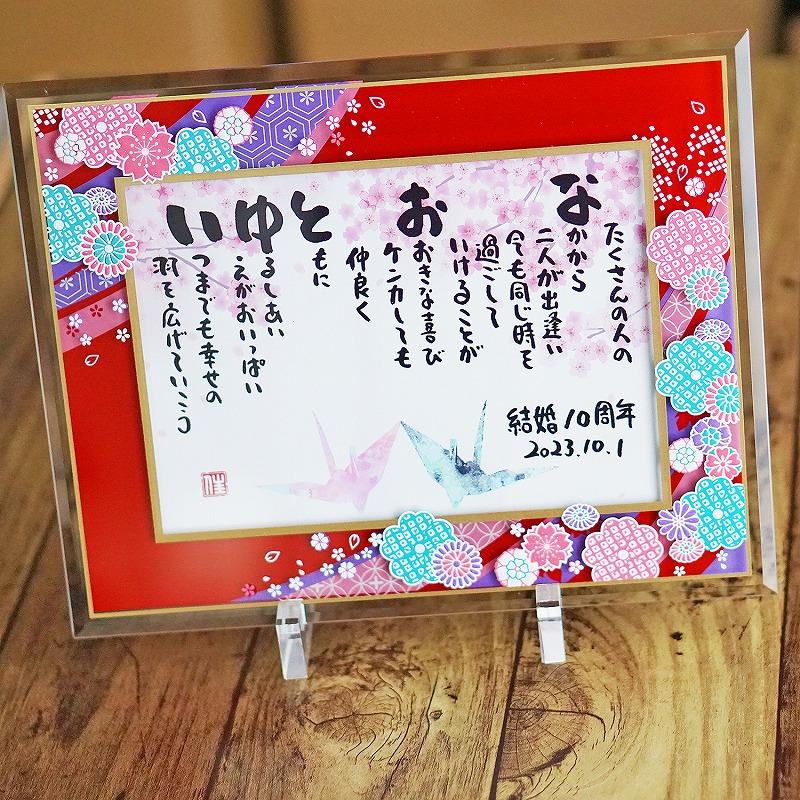 たくさんの人の
なかから
二人が出逢い
今も同じ時を
過ごして
いけることが
おおきな喜び
ケンカしても
仲良く
ともに
ゆるしあい
えがおいっぱい
いつまでも幸せの
羽を広げていこう
結婚10周年
2023.10.1